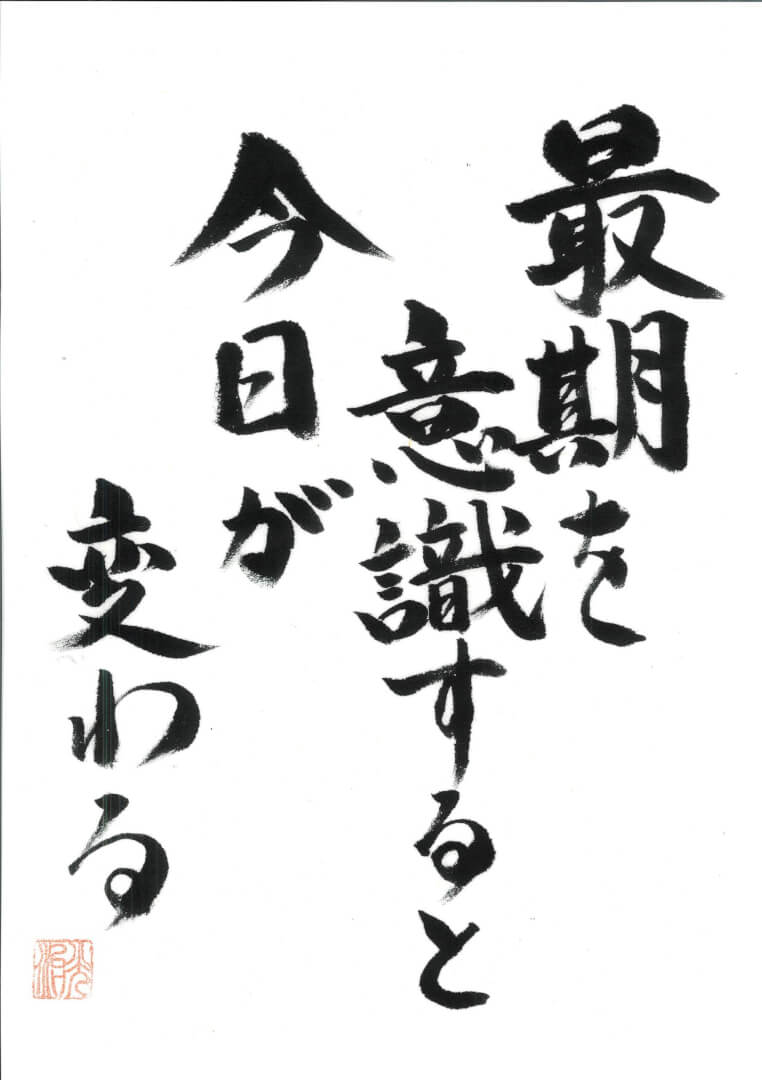 最期を
意識すると
今日が
変わる